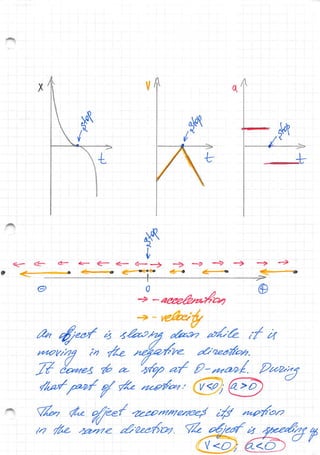 x v a
stop stop stop
t t t
stop
⊖ 0 ⊕
→ - acceleration
→ - velocity
An object is slowing down while it is
moving in the negative direction.
It comes to a stop at 0-mark. During
that part of the motion: v<0; a>0
Then the object recommences its motion
in the same direction. The object is speeding up
v<0; a<0